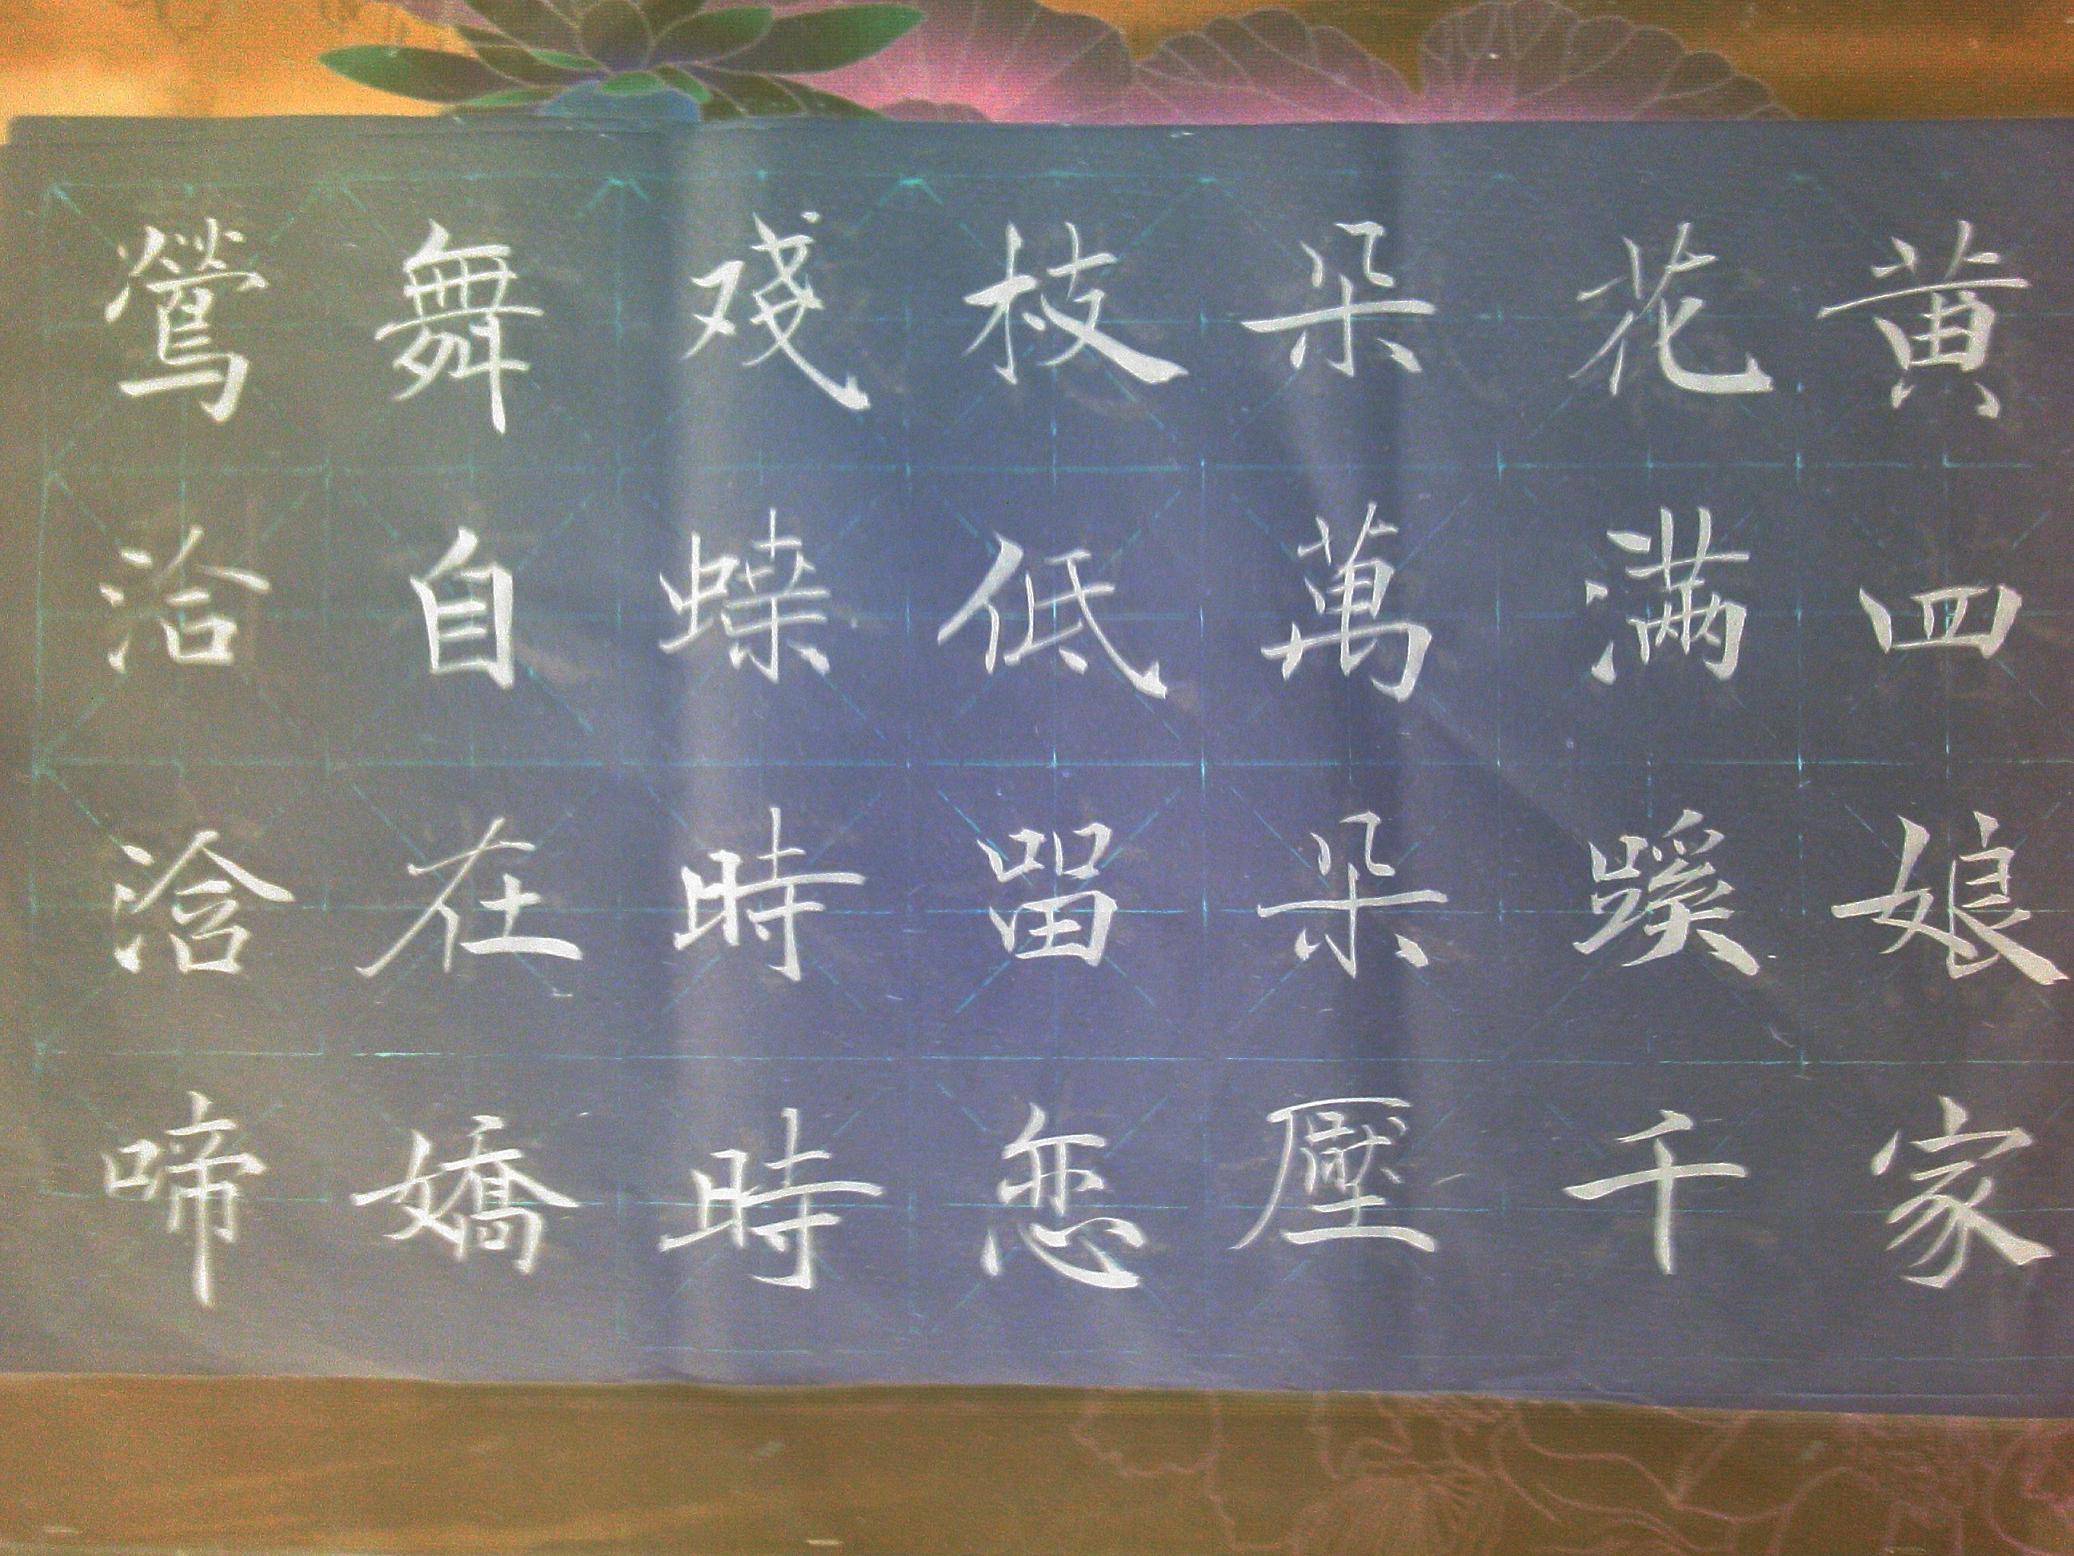 黄四娘家
花满蹊千
朵萬朵壓
枝低留恋
戏蝶時時
舞自在嬌
鶯洽洽啼